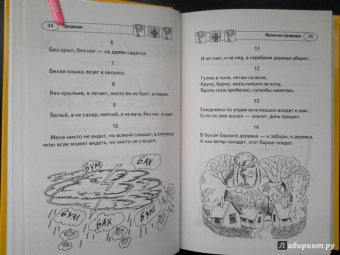 44 Природа
6
Без крыл, без ног — на древо садится.
7
Белая кошка лезет в окошко.
8
Без крыльев, а летает, никто ее не бьет, а плачет.
9
Белый, а не сахар, мягкий, а не вата, без ног, а идет.
10
Меня никто не видит, но всякий слышит, а спутницу
мою всяк может видеть, но никто не слышит.
БУМ
БАХ
БУМ
БУМ
БАХ
Явления природы 45
11
И не снег, и не лед, а серебром деревья уберет.
12
Гуляю в поле, летаю на воле,
Кручу, бурчу, знать никого не хочу,
Вдоль села пробегаю, сугробы наметаю.
13
Ежедневно по утрам он в окошко входит к нам.
Если он уже вошел — значит, день пришел.
14
В белом бархате деревня — и заборы, и деревья.
А как ветер нападет, этот бархат опадет.
Лабиринт.ру